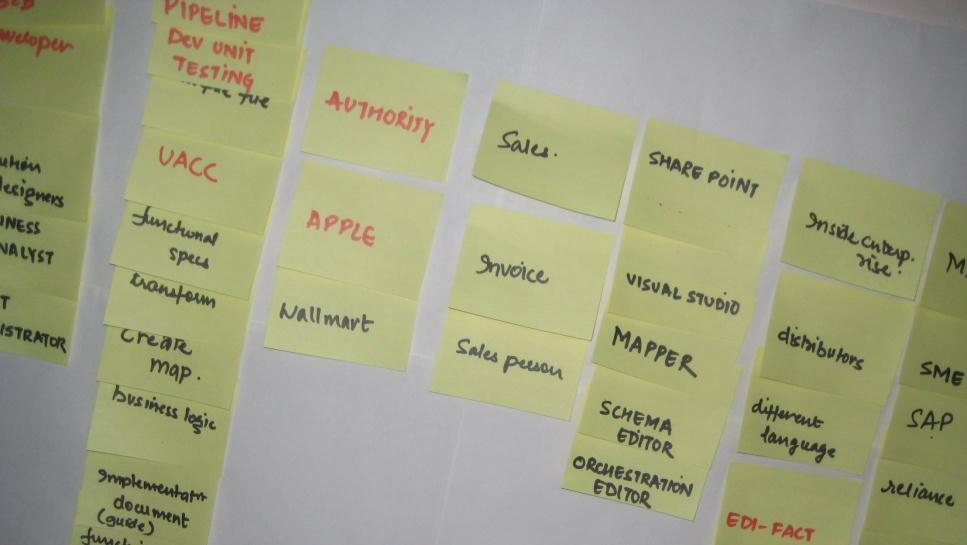 PIPELINE
DEV UNIT
TESTING
UACC
functional
specs
transform
Create
map.
business logic
document
(guide)
AUTHORITY
APPLE
Wallmart
Sales.
Invoice
Sales person
SHARE POINT
VISUAL STUDIO
MAPPER
SCHEMA
EDITOR
ORCHESTRATION
EDITOR
Inside enterp.
rise.
distributors
different
language
EDI-FACT
SME
SAP
reliance